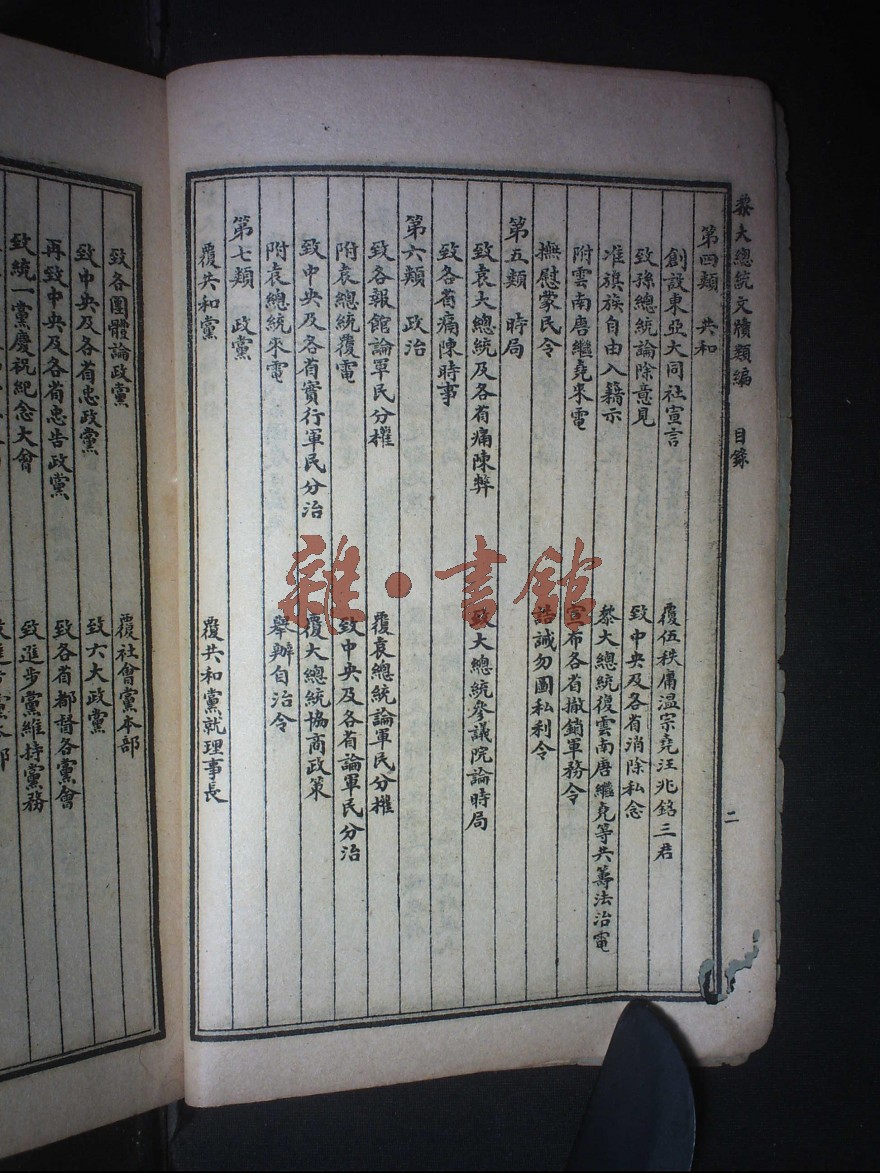 黎大總統文牘類編 目錄 二
第四類 共和
創設東亞大同社宣言 覆伍秩庸溫宗堯汪兆銘三君
致孫總統論除意見 致中央及各省消除私念
准旗族自由入籍示 黎大總統復雲南唐繼堯等共籌法治電
附雲南唐繼堯來電 宣布各省撤銷軍務令
撫慰蒙民令 誥誡勿圖私利令
第五類 時局
致袁大總統及各省痛陳弊 致大總統參議院論時局
致各省痛陳時事
第六類 政治
致各報館論軍民分權 覆袁總統論軍民分權
附袁總統覆電 致中央及各省論軍民分治
致中央及各省實行軍民分治 覆大總統協商政策
附袁總統來電 舉辦自治令
第七類 政黨
覆共和黨 覆共和黨就理事長
致各團體論政黨 覆社會黨本部
致中央及各省忠政黨 致六大政黨
再致中央及各省忠告政黨 致各省都督各黨會
致統一黨慶祝紀念大會 致進步黨維持黨務
雜·書館